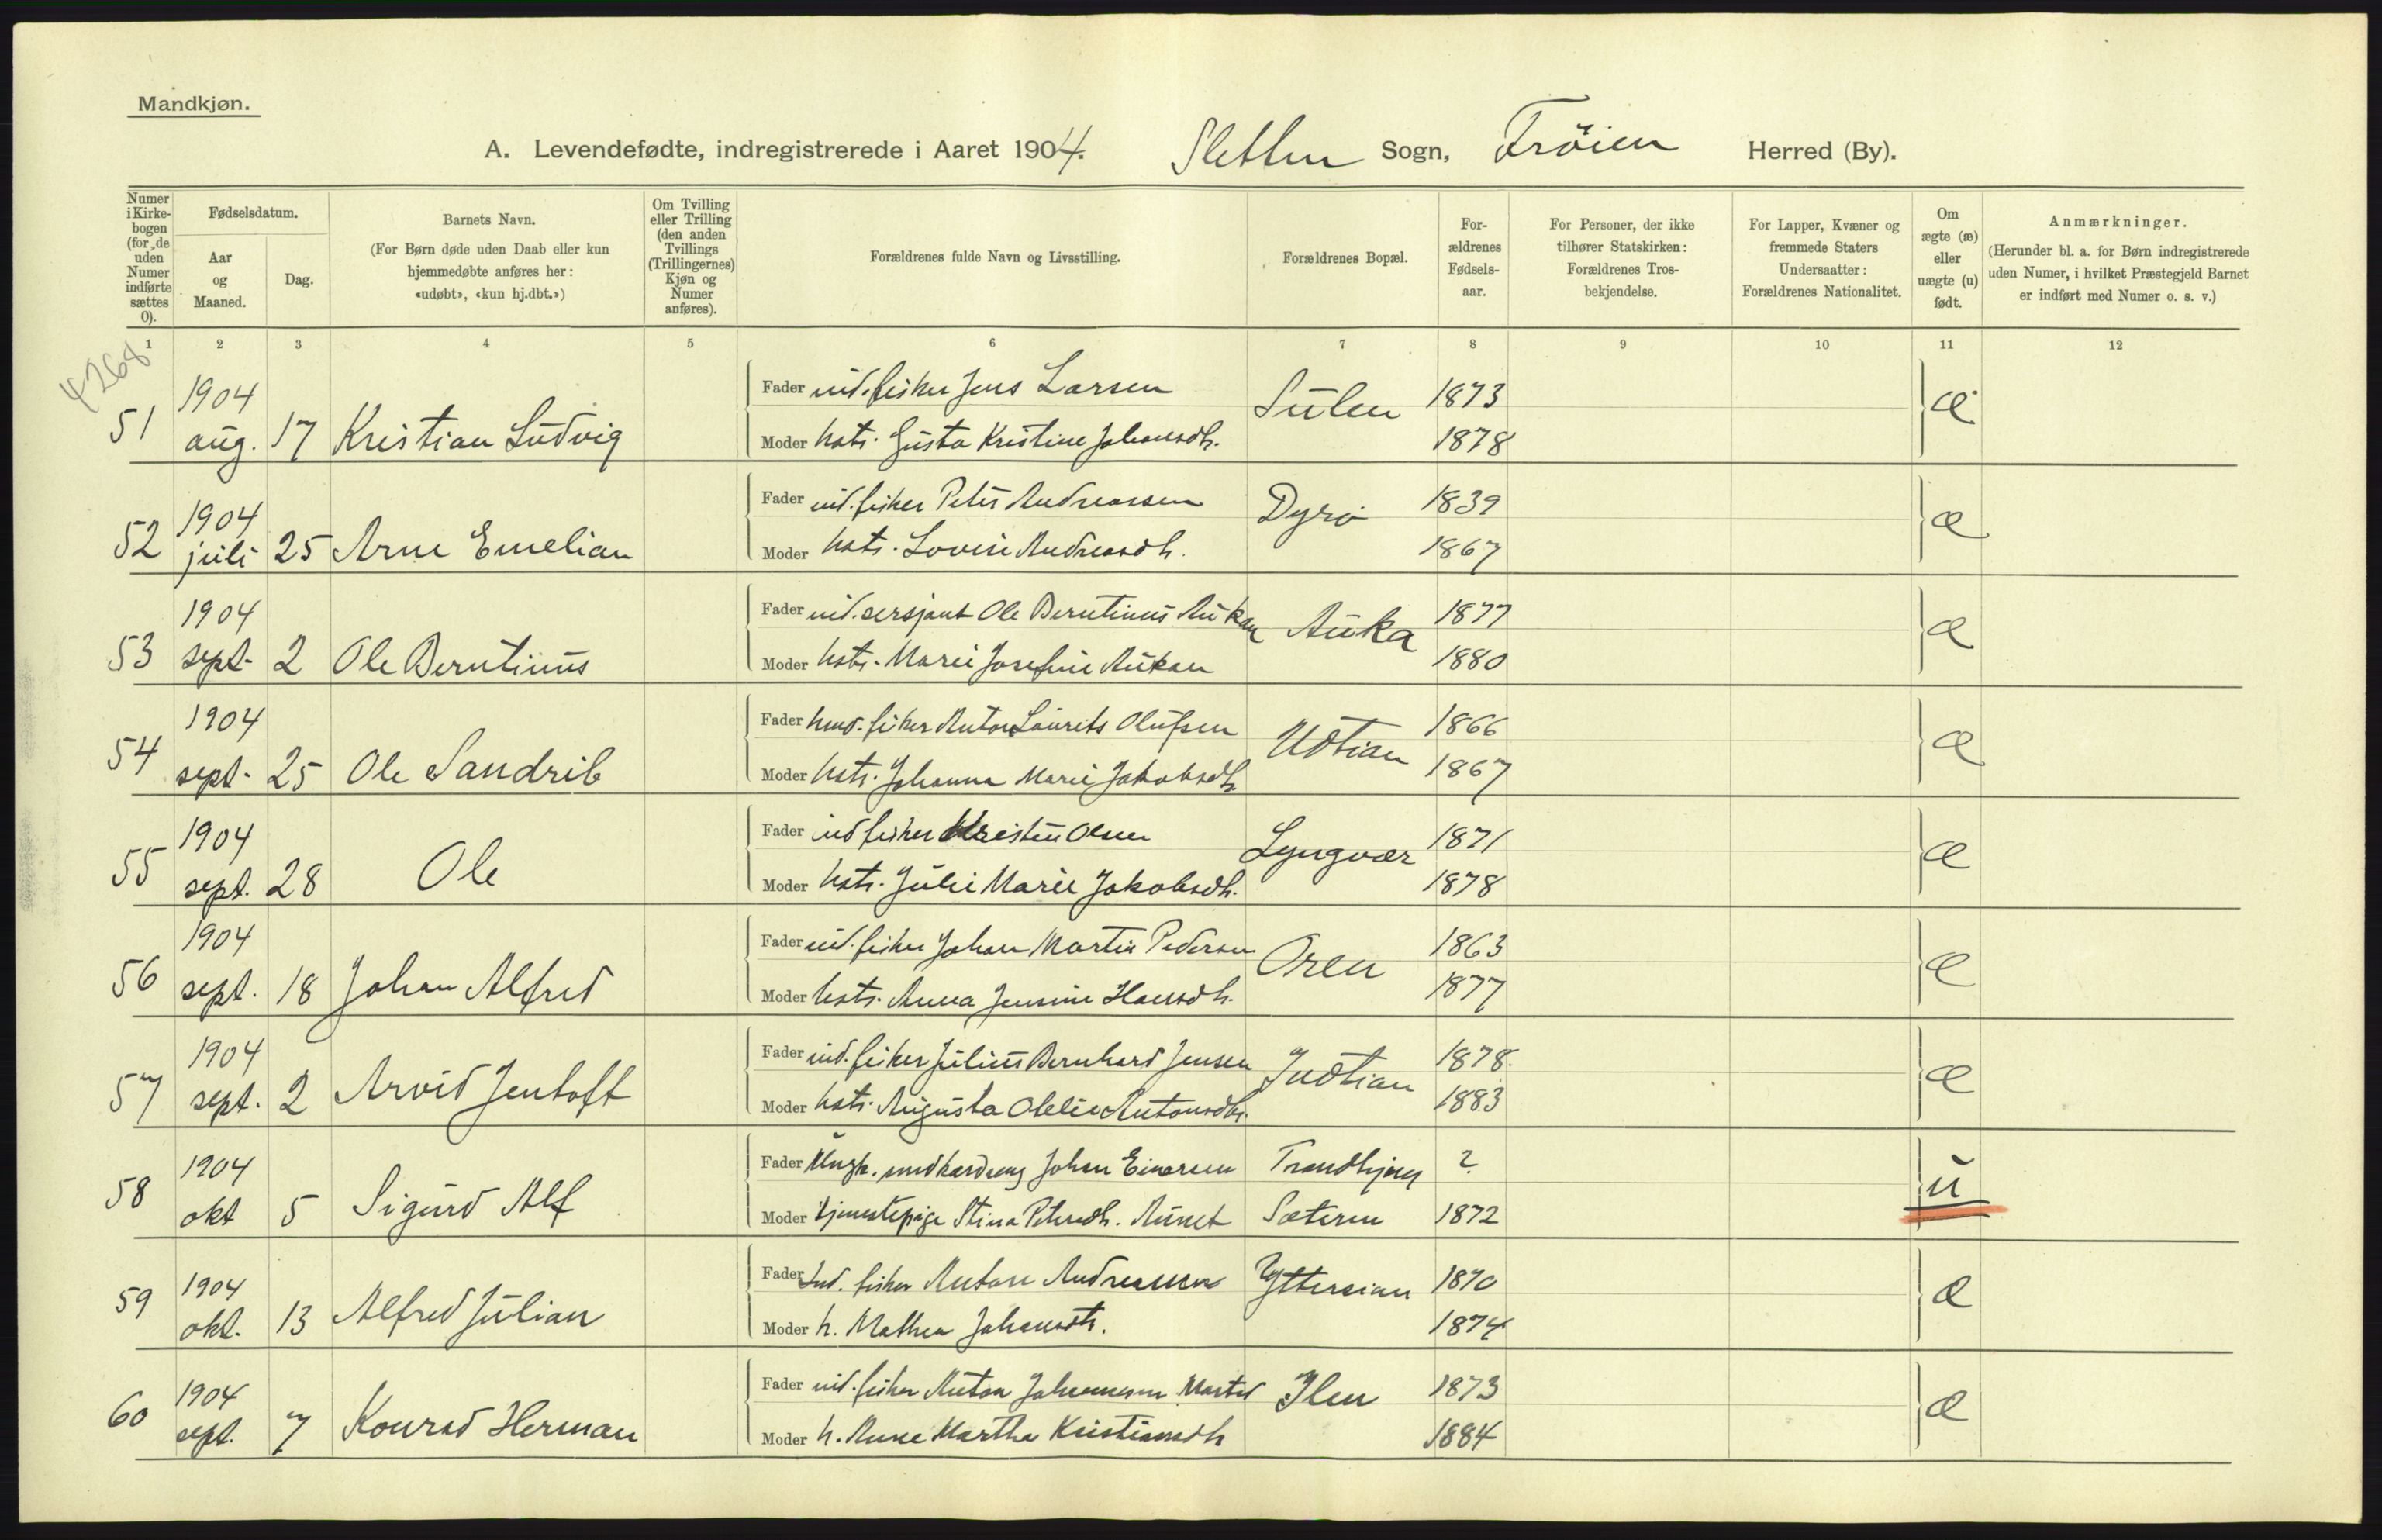 Mandkjøn.
A. Levendefødte, indregistrerede i Aaret 1904. Sletten Sogn, Frøien Herred (By).
Numer i Kirkebogen (for de uden Numer indførte sættes 0).
Fødselsdatum.
Aar og Maaned.
Dag.
Barnets Navn.
(For Børn døde uden Daab eller kun hjemmedøbte anføres her: «udøbt», «kun hj.dbt.»)
Om Tvilling eller Trilling (den anden Tvillings (Trillingernes) Kjøn og Numer anføres).
Forældrenes fulde Navn og Livsstilling.
Forældrenes Bopæl.
Forældrenes Fødselsaar.
For Personer, der ikke tilhører Statskirken: Forældrenes Trosbekjendelse.
For Lapper, Kvæner og fremmede Staters Undersaatter: Forældrenes Nationalitet.
Om ægte (æ) eller uægte (u) født.
Anmærkninger.
(Herunder bl. a. for Børn indregistrerede uden Numer, i hvilket Præstegjeld Barnet er indført med Numer o. s. v.)
1 2 3 4 5 6 7 8 9 10 11 12
4268
51 1904 aug. 17 Kristian Ludvig Fader ind. fisker Jens Larsen Sulen 1873 æ
Moder hstr. Gusta Kristine Johansdtr. 1878
52 1904 juli 25 Arne Emelian Fader ind. fisker Peter Andreassen Dyrø 1839 æ
Moder hstr. Lovise Andreasdtr. 1867
53 1904 sept. 2 Ole Berntinus Fader ind. sersjant Ole Berntinus Aukan Auka 1877 æ
Moder hstr. Marie Josefine Aukan 1880
54 1904 sept. 25 Ole Sandrib Fader hmd. fisker Anton Laurits Olufsen Udtian 1866 æ
Moder hstr. Johanna Marie Jakobsdtr 1867
55 1904 sept. 28 Ole Fader ind fisker Kristen Olsen Lyngvær 1871 æ
Moder hstr. Julie Marie Jakobsdtr. 1878
56 1904 sept. 18 Johan Alfred Fader ind. fisker Johan Martin Pedersen Oren 1863 æ
Moder hstr. Anna Jensine Hansdtr. 1877
57 1904 sept. 2 Arvid Jentoft Fader ind. fisker Julius Bernhard Jensen Indtian 1878 æ
Moder hstr. Augusta Olelie Antonsdtr. 1883
58 1904 okt 5 Sigurd Alf Fader Ungk. Johan Einarsen Trondhjem ? u
Moder tjenestepige Stina Petersdtr. Aunet Sæteren 1872
59 1904 okt. 13 Alfred Julian Fader Ind. fisker Anton Andreassen Yttersian 1870 æ
Moder h. Mathea Johansdtr. 1874
60 1904 sept. 7 Konrad Herman Fader ind. fisker Anton Johannesen Ilen 1873 æ
Moder h. Anne Martha Kristiansdtr 1884